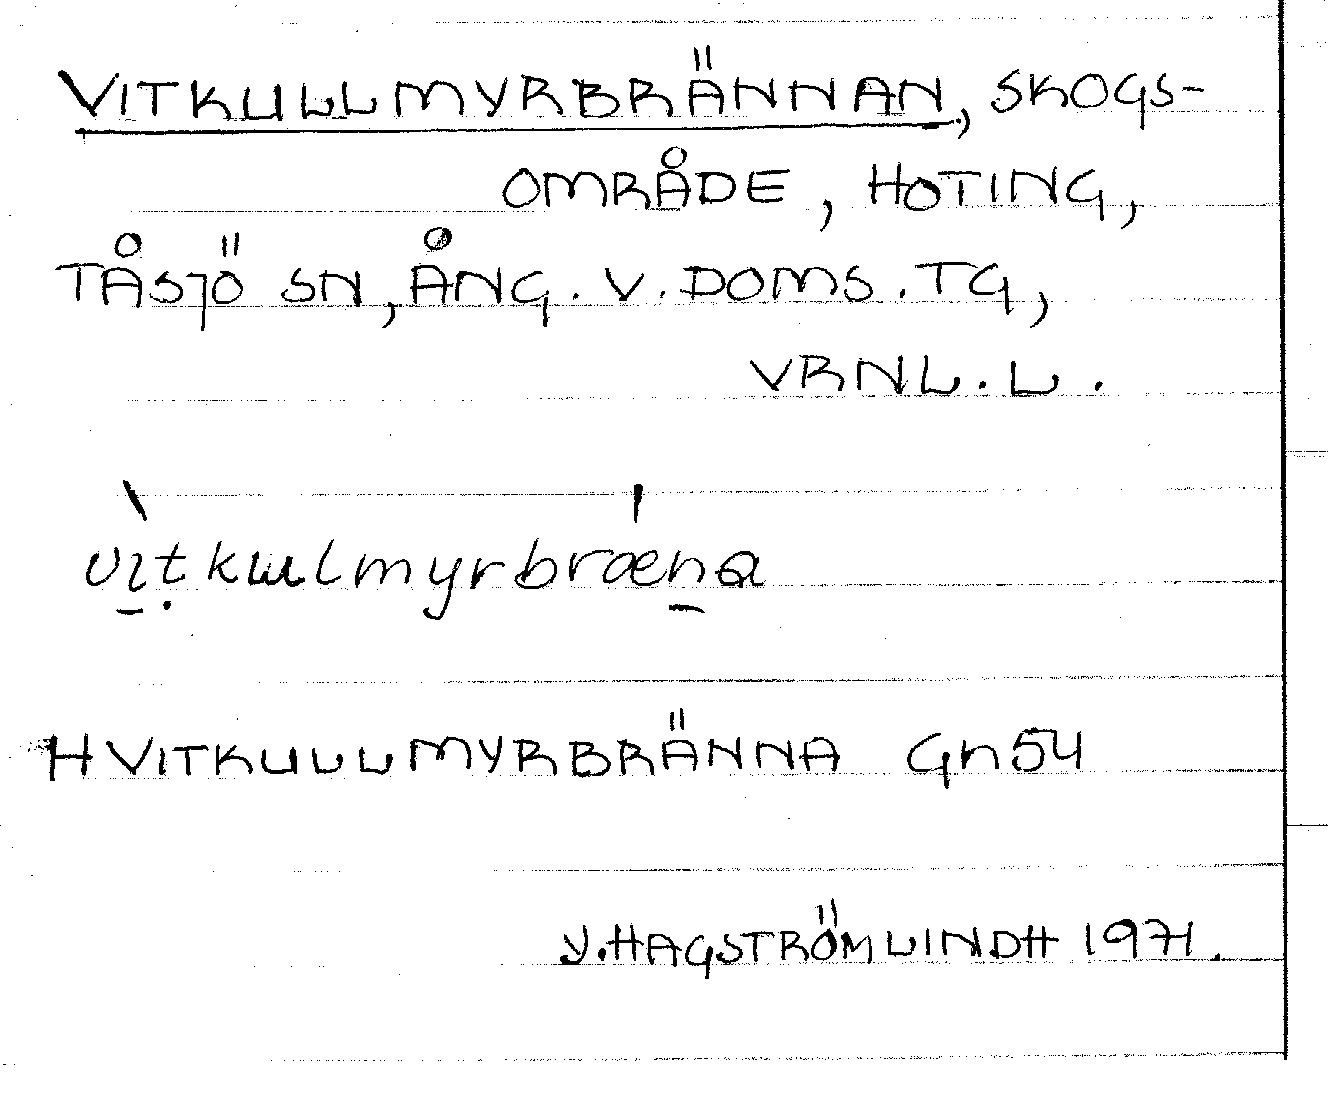 VITKULLMYRBRÄNNAN, SKOGS-
OMRÅDE, HOTING,
TÅSJÖ SN, ÅNG. V. DOMS. TG,
VRNL. L.
vı̀tkulmyrbræ̍na
HVITKULLMYRBRÄNNA Gn54
Y. HAGSTRÖM LINDH 1971.